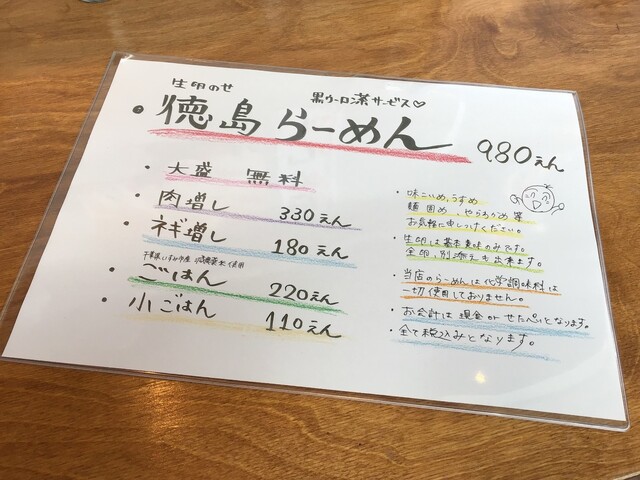 生卵のせ
黒ウーロン茶サービス♡
・徳島らーめん 980えん
・大盛 無料
・肉増し 330えん
・ネギ増し 180えん
千葉県いすみ市産 減農薬米使用
・ごはん 220えん
・小ごはん 110えん
・味こいめ、うすめ
麺 固め、やわらかめ 等
お気軽に申しつけください。
・生卵は基本黄味のみです。
全卵、別添えも出来ます。
・当店のらーめんは化学調味料は
一切使用しておりません。
・お会計は現金 or せたぺいとなります。
・全て税込みとなります。